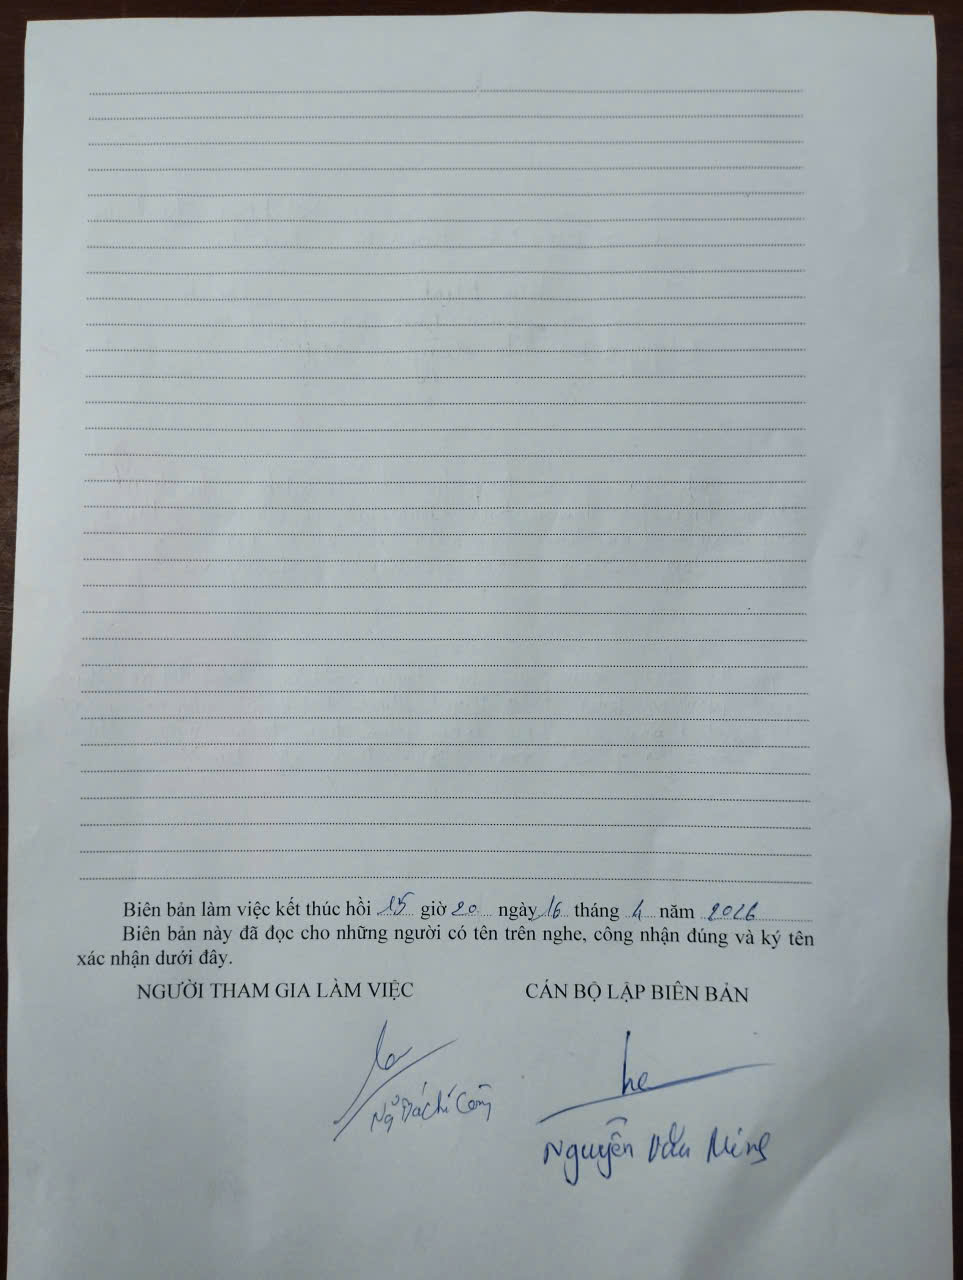 Biên bản làm việc kết thúc hồi 15 giờ 20 ngày 16 tháng 4 năm 2026
Biên bản này đã đọc cho những người có tên trên nghe, công nhận đúng và ký tên
xác nhận dưới đây.
NGƯỜI THAM GIA LÀM VIỆC
CÁN BỘ LẬP BIÊN BẢN
Nguyễn Văn